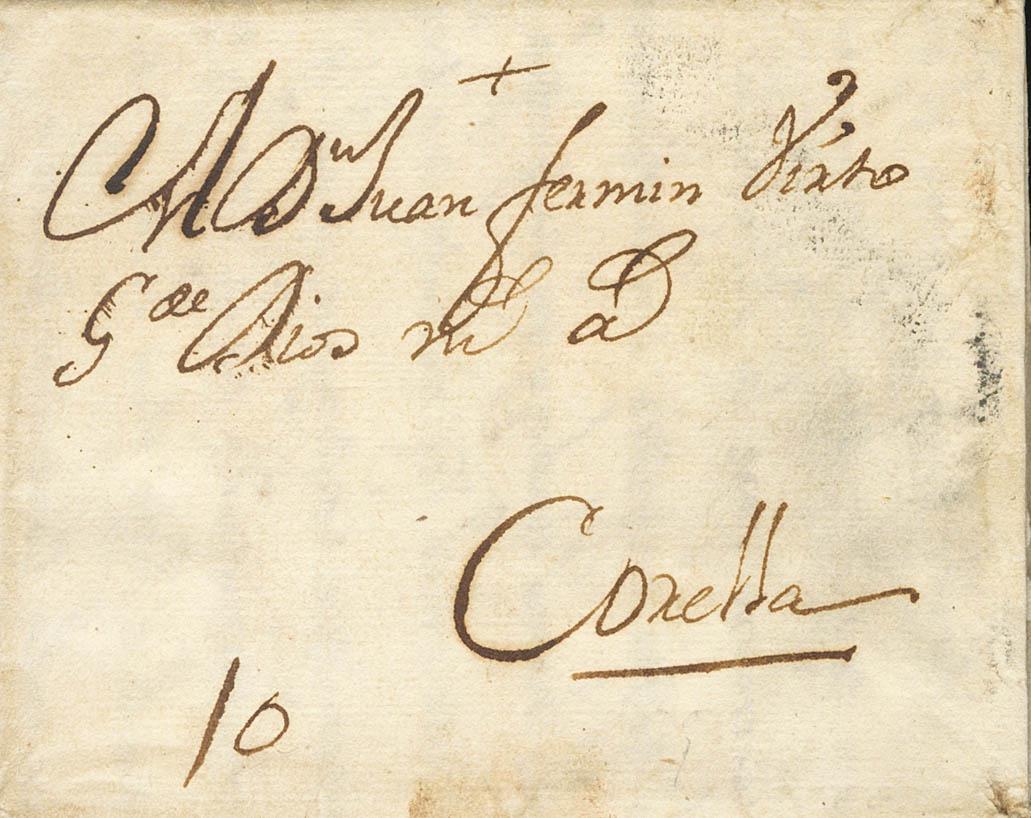 +
A Dn Juan fermin Virto
Gde Dios ms as
Corella
10